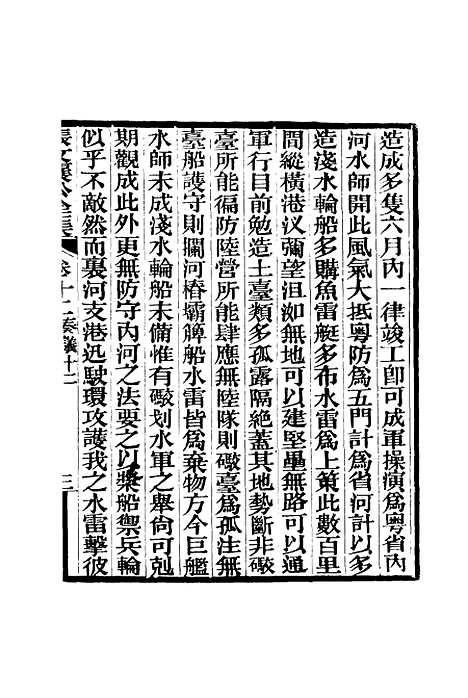 造成多隻六月內一律竣工卽可成軍操演爲粵省內
河水師開此風氣大抵粵防爲五門計爲省河計以多
造淺水輪船多購魚雷艇多布水雷爲上策此數百里
間縱橫港汊彌望沮如無地可以建堅壘無路可以通
軍行目前勉造土臺類多孤露隔絶蓋其地勢斷非礮
臺所能徧防陸營所能肆應無陸隊則礮臺爲孤注無
臺船護守則攔河樁壩簰船水雷皆爲棄物方今巨艦
水師未成淺水輪船未備惟有礮划水軍之舉尙可剋
期觀成此外更無防守內河之法要之以槳船禦兵輪
似乎不敵然而裏河支港迅駛環攻護我之水雷擊彼
張文襄公全集 卷十二 奏議十二 三